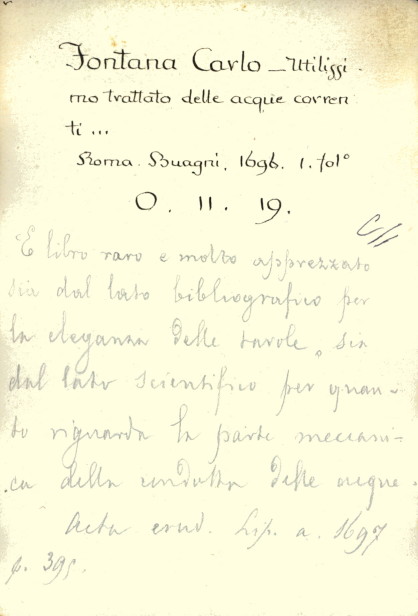 Fontana Carlo – Utilissi-
mo trattato delle acque corren
ti ...
Roma. Buagni, 1696. 1. fol°
O. 11. 19.
È libro raro e molto apprezzato
sia dal lato bibliografico per
la eleganza delle tavole, sia
dal lato scientifico per quan-
to riguarda la parte meccani-
ca della condotta delle acque.
Acta erud. Lip. a. 1697
p. 395.